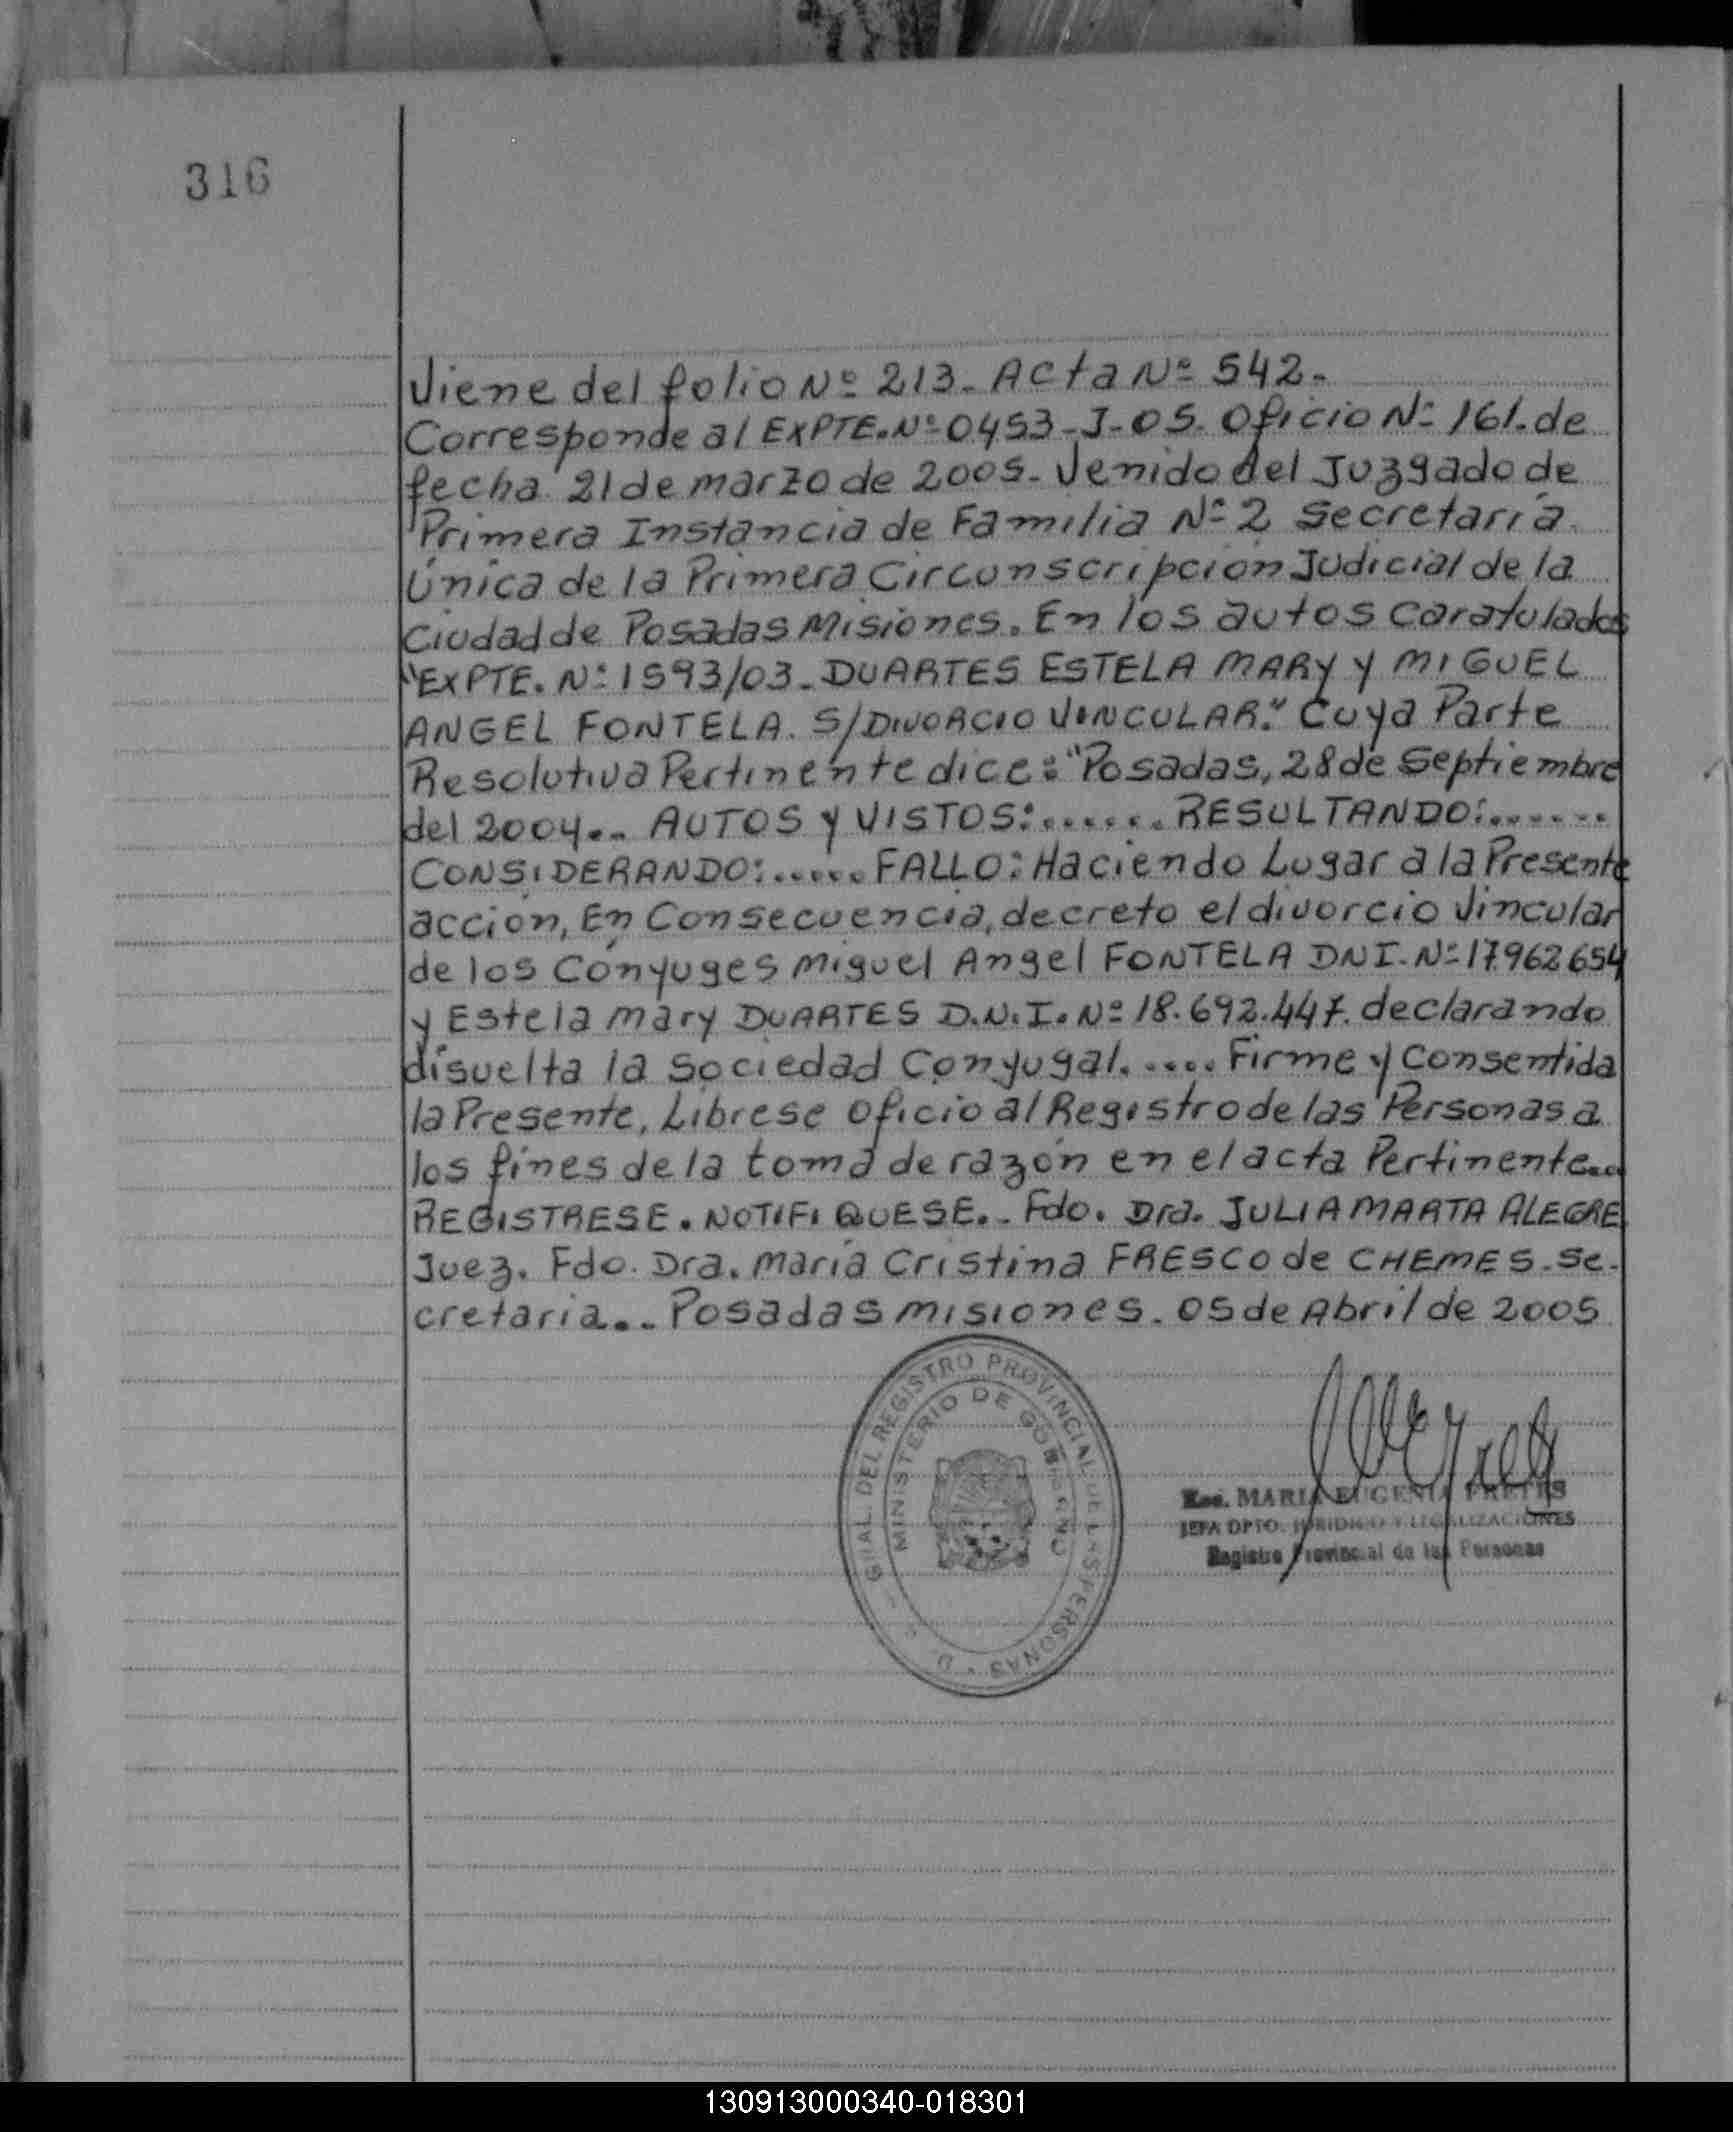 316
Viene del folio Nº 213- Acta Nº 542-
Corresponde al EXPTE.Nº0453-J-05. Oficio Nº 161.de
fecha 21 de marzo de 2005- Venido del Juzgado de
Primera Instancia de Familia Nº 2 Secretaría
Única de la Primera Circunscripción Judicial de la
Ciudad de Posadas Misiones. En los autos Caratulados
"EXPTE. Nº 1593/03- DUARTES ESTELA MARY y MIGUEL
ANGEL FONTELA. S/DIVORCIO VINCULAR." Cuya Parte
Resolutiva Pertinente dice: "Posadas, 28 de Septiembre
del 2004.- AUTOS y VISTOS:....... RESULTANDO:.......
CONSIDERANDO:..... FALLO: Haciendo Lugar a la Presente
acción, En Consecuencia, decreto el divorcio Vincular
de los Cónyuges Miguel Angel FONTELA DNI.Nº17.962.654
y Estela Mary DUARTES D.N.I.Nº 18.692.447. declarando
disuelta la Sociedad Conyugal..... Firme y Consentida
la Presente, Líbrese Oficio al Registro de las Personas a
los fines de la toma de razón en el acta Pertinente..
REGISTRESE. NOTIFIQUESE.- Fdo. Dra. JULIA MARTA ALEGRE
Juez. Fdo. Dra. María Cristina FRESCO de CHEMES-Se-
cretaria.- Posadas Misiones. 05 de Abril de 2005
GRAL. DEL REGISTRO PROVINCIAL DE LAS PERSONAS
MINISTERIO DE GOBIERNO
Esc. MARIA EUGENIA FRETES
JEFA DPTO. JURIDICO Y LEGALIZACIONES
Registro Provincial de las Personas
130913000340-018301